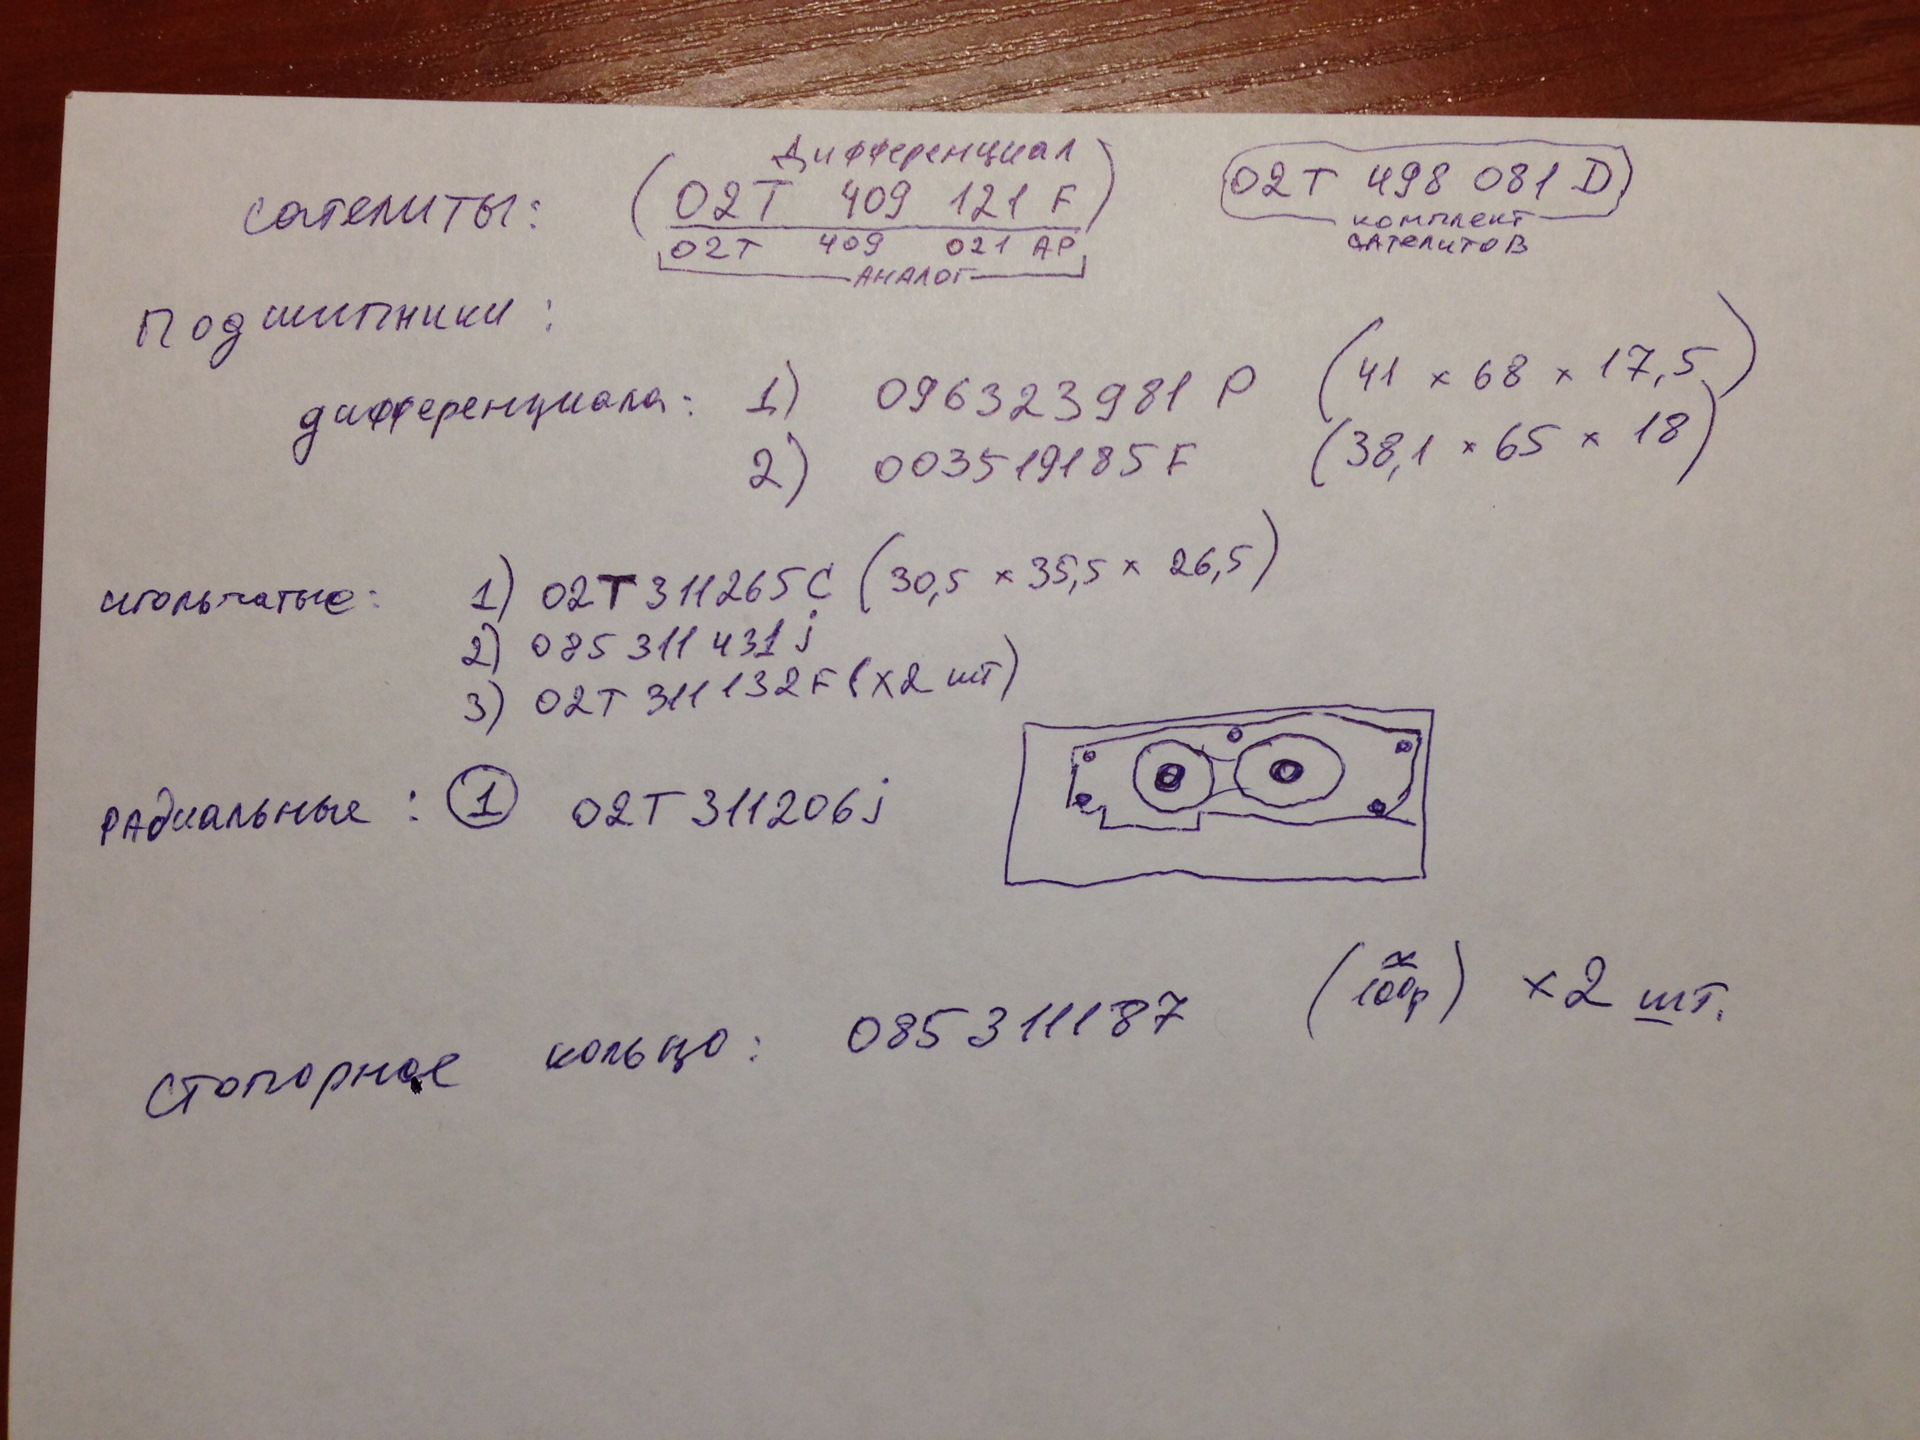 Дифференциал
сателиты: (02T 409 121 F) 02T 498 081 D
02T 409 021 AP комплект
АНАЛОГ сателитов
Подшипники:
дифференциала: 1) 096323981 P (41 x 68 x 17,5)
2) 003519185F (38,1 x 65 x 18)
игольчатые: 1) 02T311265C (30,5 x 35,5 x 26,5)
2) 085 311 431 j
3) 02T 311 132F (x2 шт)
радиальные: 1 02T311206j
стопорное кольцо: 085311187 (~ 100р) x2 шт.